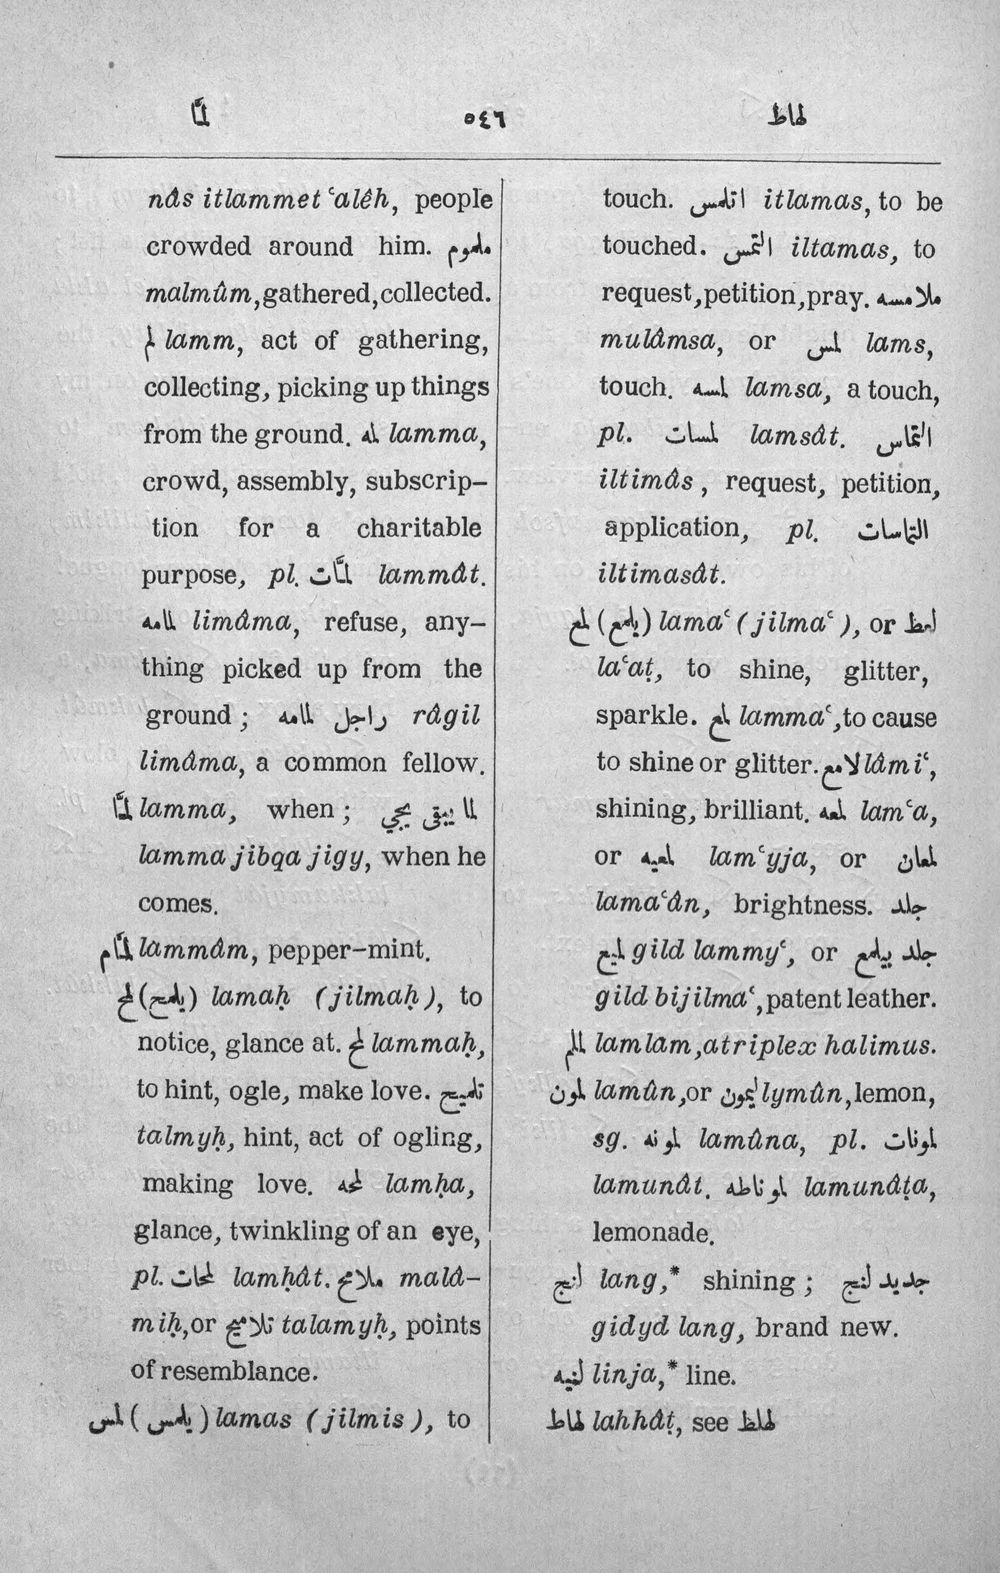 لمّا ٥٤٦ لهاط
nâs itlammet ʿalêh, people
crowded around him. ملموم
malmûm, gathered, collected.
لم lamm, act of gathering,
collecting, picking up things
from the ground. لمه lamma,
crowd, assembly, subscrip-
tion for a charitable
purpose, pl. لمّات lammât.
لمامه limâma, refuse, any-
thing picked up from the
ground ; راجل لمامه râgil
limâma, a common fellow.
لمّا lamma, when ; لما يبقى يجي
lamma jibqa jigy, when he
comes.
لمّام lammâm, pepper-mint.
لمح (يلمح) lamaḥ (jilmaḥ), to
notice, glance at. لمح lammaḥ,
to hint, ogle, make love. تلميح
talmyḥ, hint, act of ogling,
making love. لمحه lamḥa,
glance, twinkling of an eye,
pl. لمحات lamḥât. ملامح malâ-
miḥ, or تلاميح talamyḥ, points
of resemblance.
لمس (يلمس) lamas (jilmis), to
touch. اتلمس itlamas, to be
touched. التمس iltamas, to
request, petition, pray. ملامسه
mulâmsa, or لمس lams,
touch. لمسه lamsa, a touch,
pl. لمسات lamsât. التماس
iltimâs, request, petition,
application, pl. التماسات
iltimasât.
لمع (يلمع) lamaʿ (jilmaʿ), or لعط
laʿaṭ, to shine, glitter,
sparkle. لمع lammaʿ, to cause
to shine or glitter. لامع lâmiʿ,
shining, brilliant. لمعه lamʿa,
or لمعيه lamʿyja, or لمعان
lamaʿân, brightness. جلد
لميع gild lammyʿ, or جلد بيلمع
gild bijilmaʿ, patent leather.
لملم lamlam, atriplex halimus.
لمون lamûn, or ليمون lymûn, lemon,
sg. لمونه lamûna, pl. لمونات
lamunât. لموناطه lamunâṭa,
lemonade.
لنج lang,* shining ; جديد لنج
gidyd lang, brand new.
لنيه linja,* line.
لهاط lahhâṭ, see لهظ